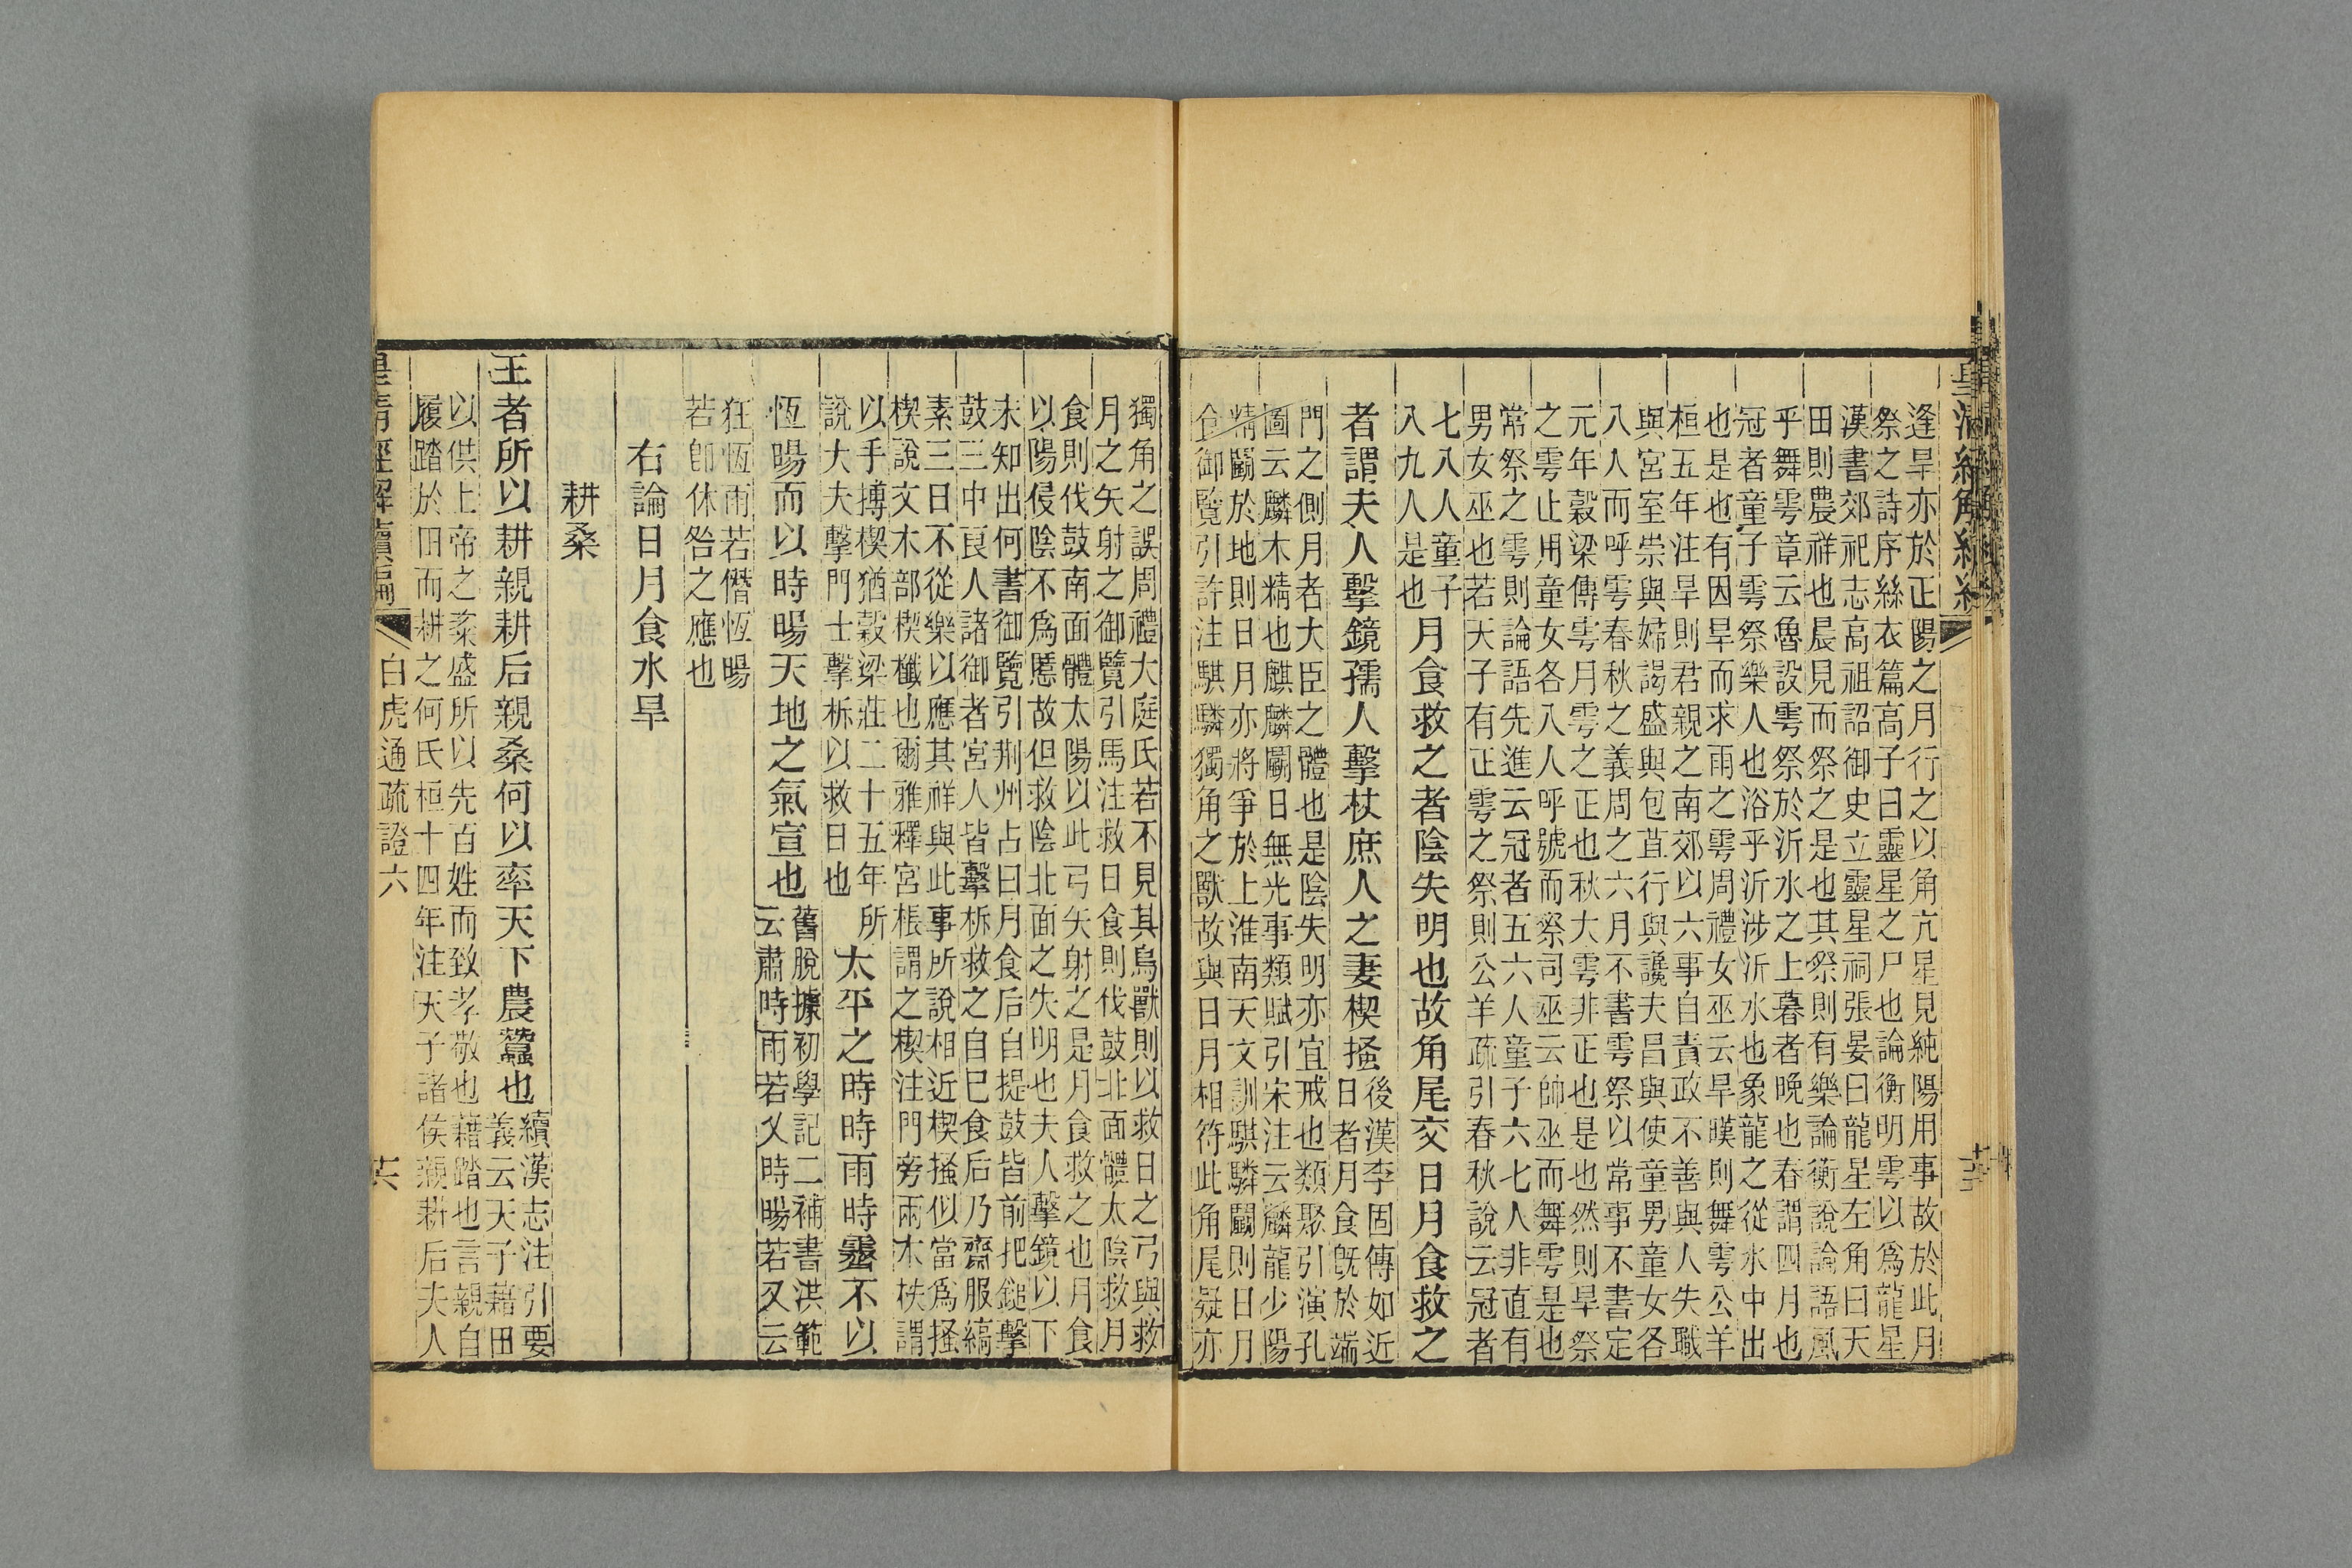 逢旱亦於正陽之月行之以角亢星見純陽用事故於此月
祭之詩序絲衣篇高子曰靈星之尸也論衡明雩以爲龍星
漢書郊祀志高祖詔御史立靈星祠張晏曰龍星左角曰天
田則農祥也晨見而祭之是也其祭則有樂論衡說論語風
乎舞雩章云魯設雩祭於沂水之上暮者晚也春謂四月也
冠者童子雩祭樂人也浴乎沂涉沂水也象龍之從水中出
也是也有因旱而求雨之雩周禮女巫云旱暵則舞雩公羊
桓五年注旱則君親之南郊以六事自責政不善與人失職
與宮室崇與婦謁盛與包苴行與讒夫昌與使童男童女各
八人而呼雩春秋之義周之六月不書雩祭以常事不書定
元年穀梁傳雩月雩之正也秋大雩非正也是也然則旱祭
之雩止用童女各八人呼號而祭司巫云帥巫而舞雩是也
常祭之雩則論語先進云冠者五六人童子六七人非直有
男女巫也若天子有正雩之祭則公羊疏引春秋說云冠者
七八人童子
八九人是也
月食救之者陰失明也故角尾交日月食救之
者謂夫人擊鏡孺人擊杖庶人之妻楔搔
後漢李固傳如近
日者月食旣於端
門之側月者大臣之體也是陰失明亦宜戒也類聚引演孔
圖云麟木精也麒麟鬬日無光事類賦引宋注云麟龍少陽
精鬬於地則日月亦將爭於上淮南天文訓騏驎鬬則日月
食御覽引許注騏驎獨角之獸故與日月相符此角尾疑亦
獨角之誤周禮大庭氏若不見其鳥獸則以救日之弓與救
月之矢射之御覽引馬注救日食則伐鼓北面體太陰救月
食則伐鼓南面體太陽以此弓矢射之是月食救之也月食
以陽侵陰不爲慝故但救陰北面之失明也夫人擊鏡以下
未知出何書御覽引荆州占曰月食后自提鼓皆前把鎚擊
鼓三中良人諸御者宮人皆擊柝救之自巳食后乃齋服縞
素三日不從樂以應其祥與此事所說相近楔搔似當爲搔
楔說文木部楔櫼也爾雅釋宮棖謂之楔注門旁兩木柣謂
以手搏楔猶穀梁莊二十五年所
說大夫擊門士擊柝以救日也
太平之時時雨時霽不以
恆暘而以時暘天地之氣宣也
舊脫據初學記二補書洪範
云肅時雨若乂時暘若又云
狂恆雨若僭恆暘
若卽休咎之應也
右論日月食水旱
耕桑
王者所以耕親耕后親桑何以率天下農蠶也
續漢志注引要
義云天子藉田
以供上帝之粢盛所以先百姓而致孝敬也藉蹈也言親自
履蹈於田而耕之何氏桓十四年注天子諸侯親耕后夫人
皇淸經解續編
白虎通疏證六